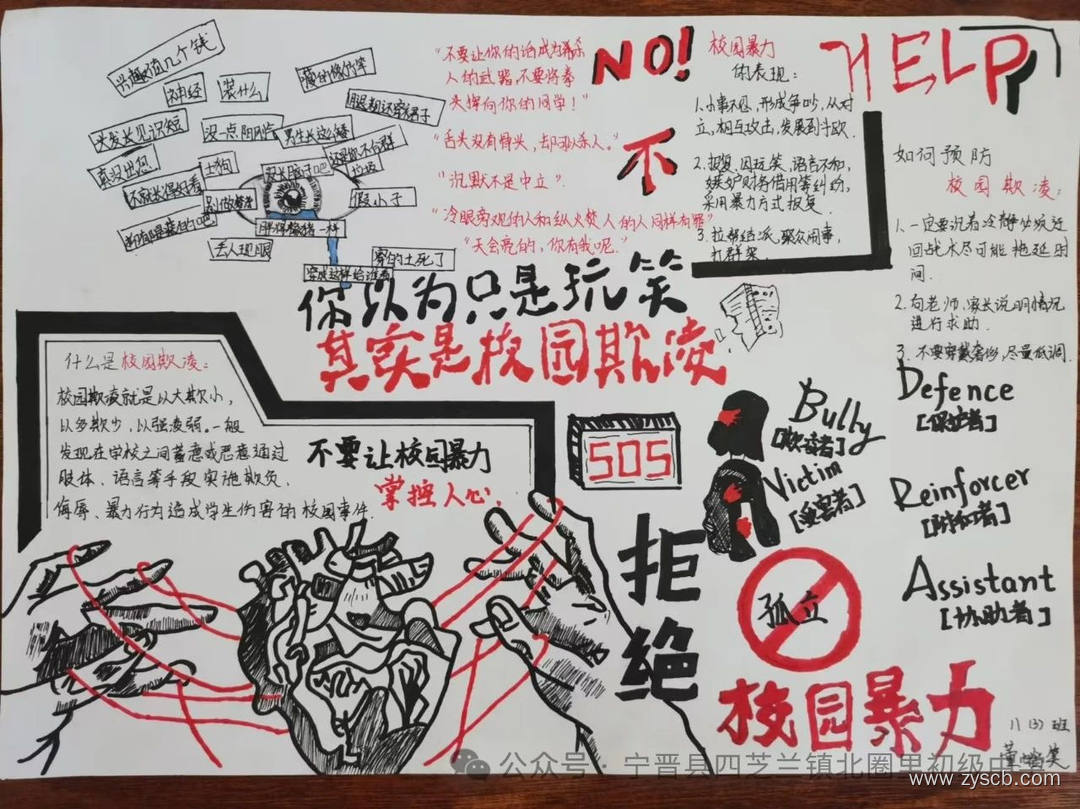 兴趣值几个钱
神经
装什么
头发长见识短
没一点阴阳怪气
男生长这么矮
真没出息
土狗
没长脑子吧
还是你不合群
垃圾
假小子
胖得像猪一样
丢人现眼
穿的土死了
穿成这样给谁看
"不要让你的话成为杀
人的武器,不要将拳
头挥向你的同学!"
"舌头没有骨头,却可以杀人。"
"沉默不是中立".
"冷眼旁观的人和纵火焚人的人同样有罪"
"天会亮的,你有我呢."
NO!
不
校园暴力
的表现:
1.小事不忍,形成争吵,从对
立,相互攻击,发展到斗殴.
2.报复.因玩笑、语言不和,
嫉妒财务借用等纠纷,
采用暴力方式报复.
3.拉帮结派,聚众闹事,
打群架.
HELP
如何预防
校园欺凌:
1.一定要沉着冷静必要迂
回战术尽可能拖延时
间.
2.向老师,家长说明情况
进行求助.
3.不要穿戴奢侈,尽量低调.
你以为只是玩笑
其实是校园欺凌
什么是校园欺凌:
校园欺凌就是以大欺小,
以多欺少,以强凌弱.一般
发现在学校之间蓄意或恶意通过
肢体、语言等手段实施欺负、
侮辱、暴力行为造成学生伤害的校园事件.
不要让校园暴力
掌控人心.
SOS
Bully
[欺凌者]
Victim
[受害者]
Defence
[保护者]
Reinforcer
[附和者]
Assistant
[协助者]
拒绝
孤立
校园暴力
八(3)班
公众号·宁晋县四芝兰镇北圈里初级中
www.zyscb.com